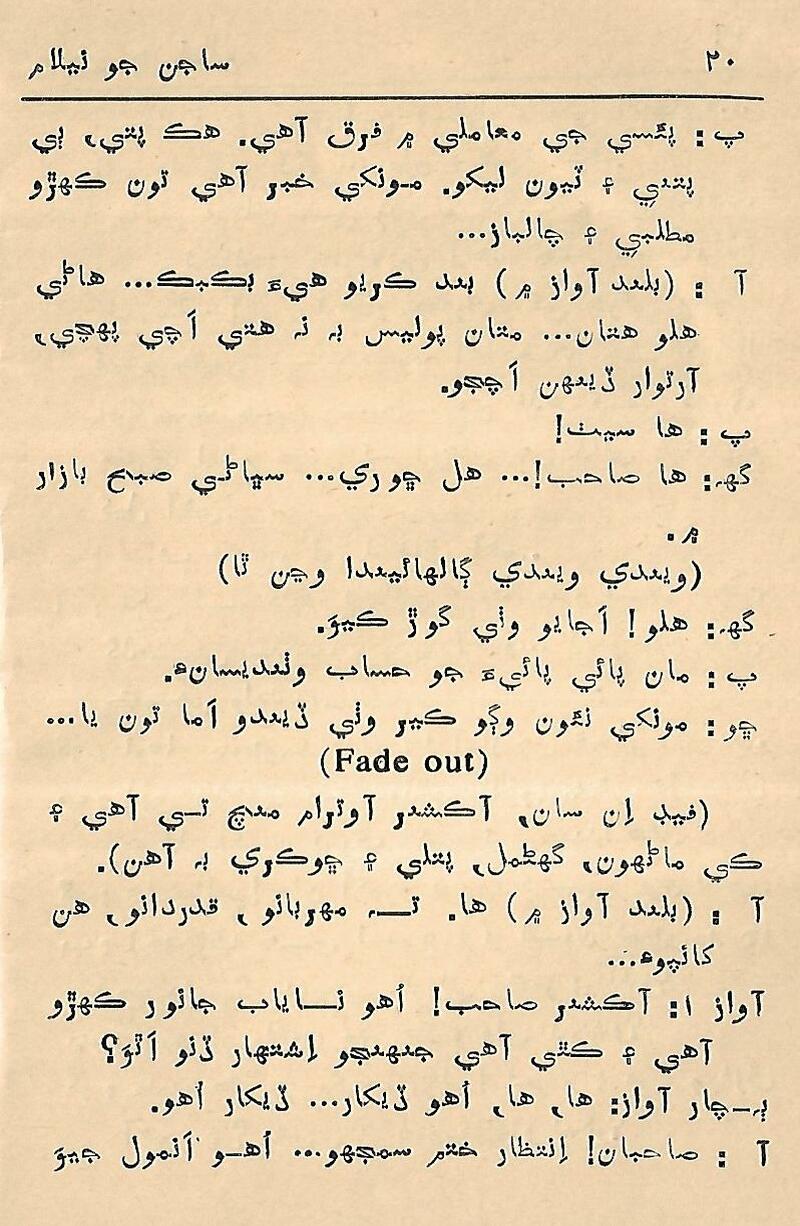 ۲۰ ساجن جو نيلام
پ : پئسي جي معاملي ۾ فرق آهي. هڪ پتي، ٻي
پتي ۽ ٽيون ليکو. مونکي خبر آهي تون ڪهڙو
مطلبي ۽ چالباز...
آ : (بلند آواز ۾) بند ڪريو هيءَ بڪبڪ... هاڻي
هلو هتان... متان پوليس به نه هتي اَچي پهچي،
آرتوار ڏينهن اَچجو.
پ : ها سيٺ!
گهہ: ها صاحب!... هل ڇوري... سڀاڻي صبح بازار
۾.
(ويندي ويندي ڳالهائيندا وڃن ٿا)
گهہ: هلو! اَجايو وٺي گوڙ ڪيوَ.
پ : مان پائي پائيءَ جو حساب وٺنديسان۽.
ڇو : مونکي نئون وڳو ڪير وٺي ڏيندو اَما تون يا...
(Fade out)
(فيڊ اِن سان، آڪشنر آوترام منچ تي آهي ۽
ڪي ماڻهون، گهڻمل، پتلي ۽ ڇوڪري به آهن).
آ : (بلند آواز ۾) ها. ته مهربانو، قدردانو، هن
کانپوءِ...
آواز ۱: آڪشنر صاحب! اُهو ناياب جانور ڪهڙو
آهي ۽ ڪٿي آهي جنهنجو اِشتهار ڏنو اَٿوَ؟
ٻہ-چار آواز: ها، ها، اُهو ڏيکار... ڏيکار اُهو.
آ : صاحبان! اِنتظار ختم سمجهو... اُهو اَنمول جيوَ